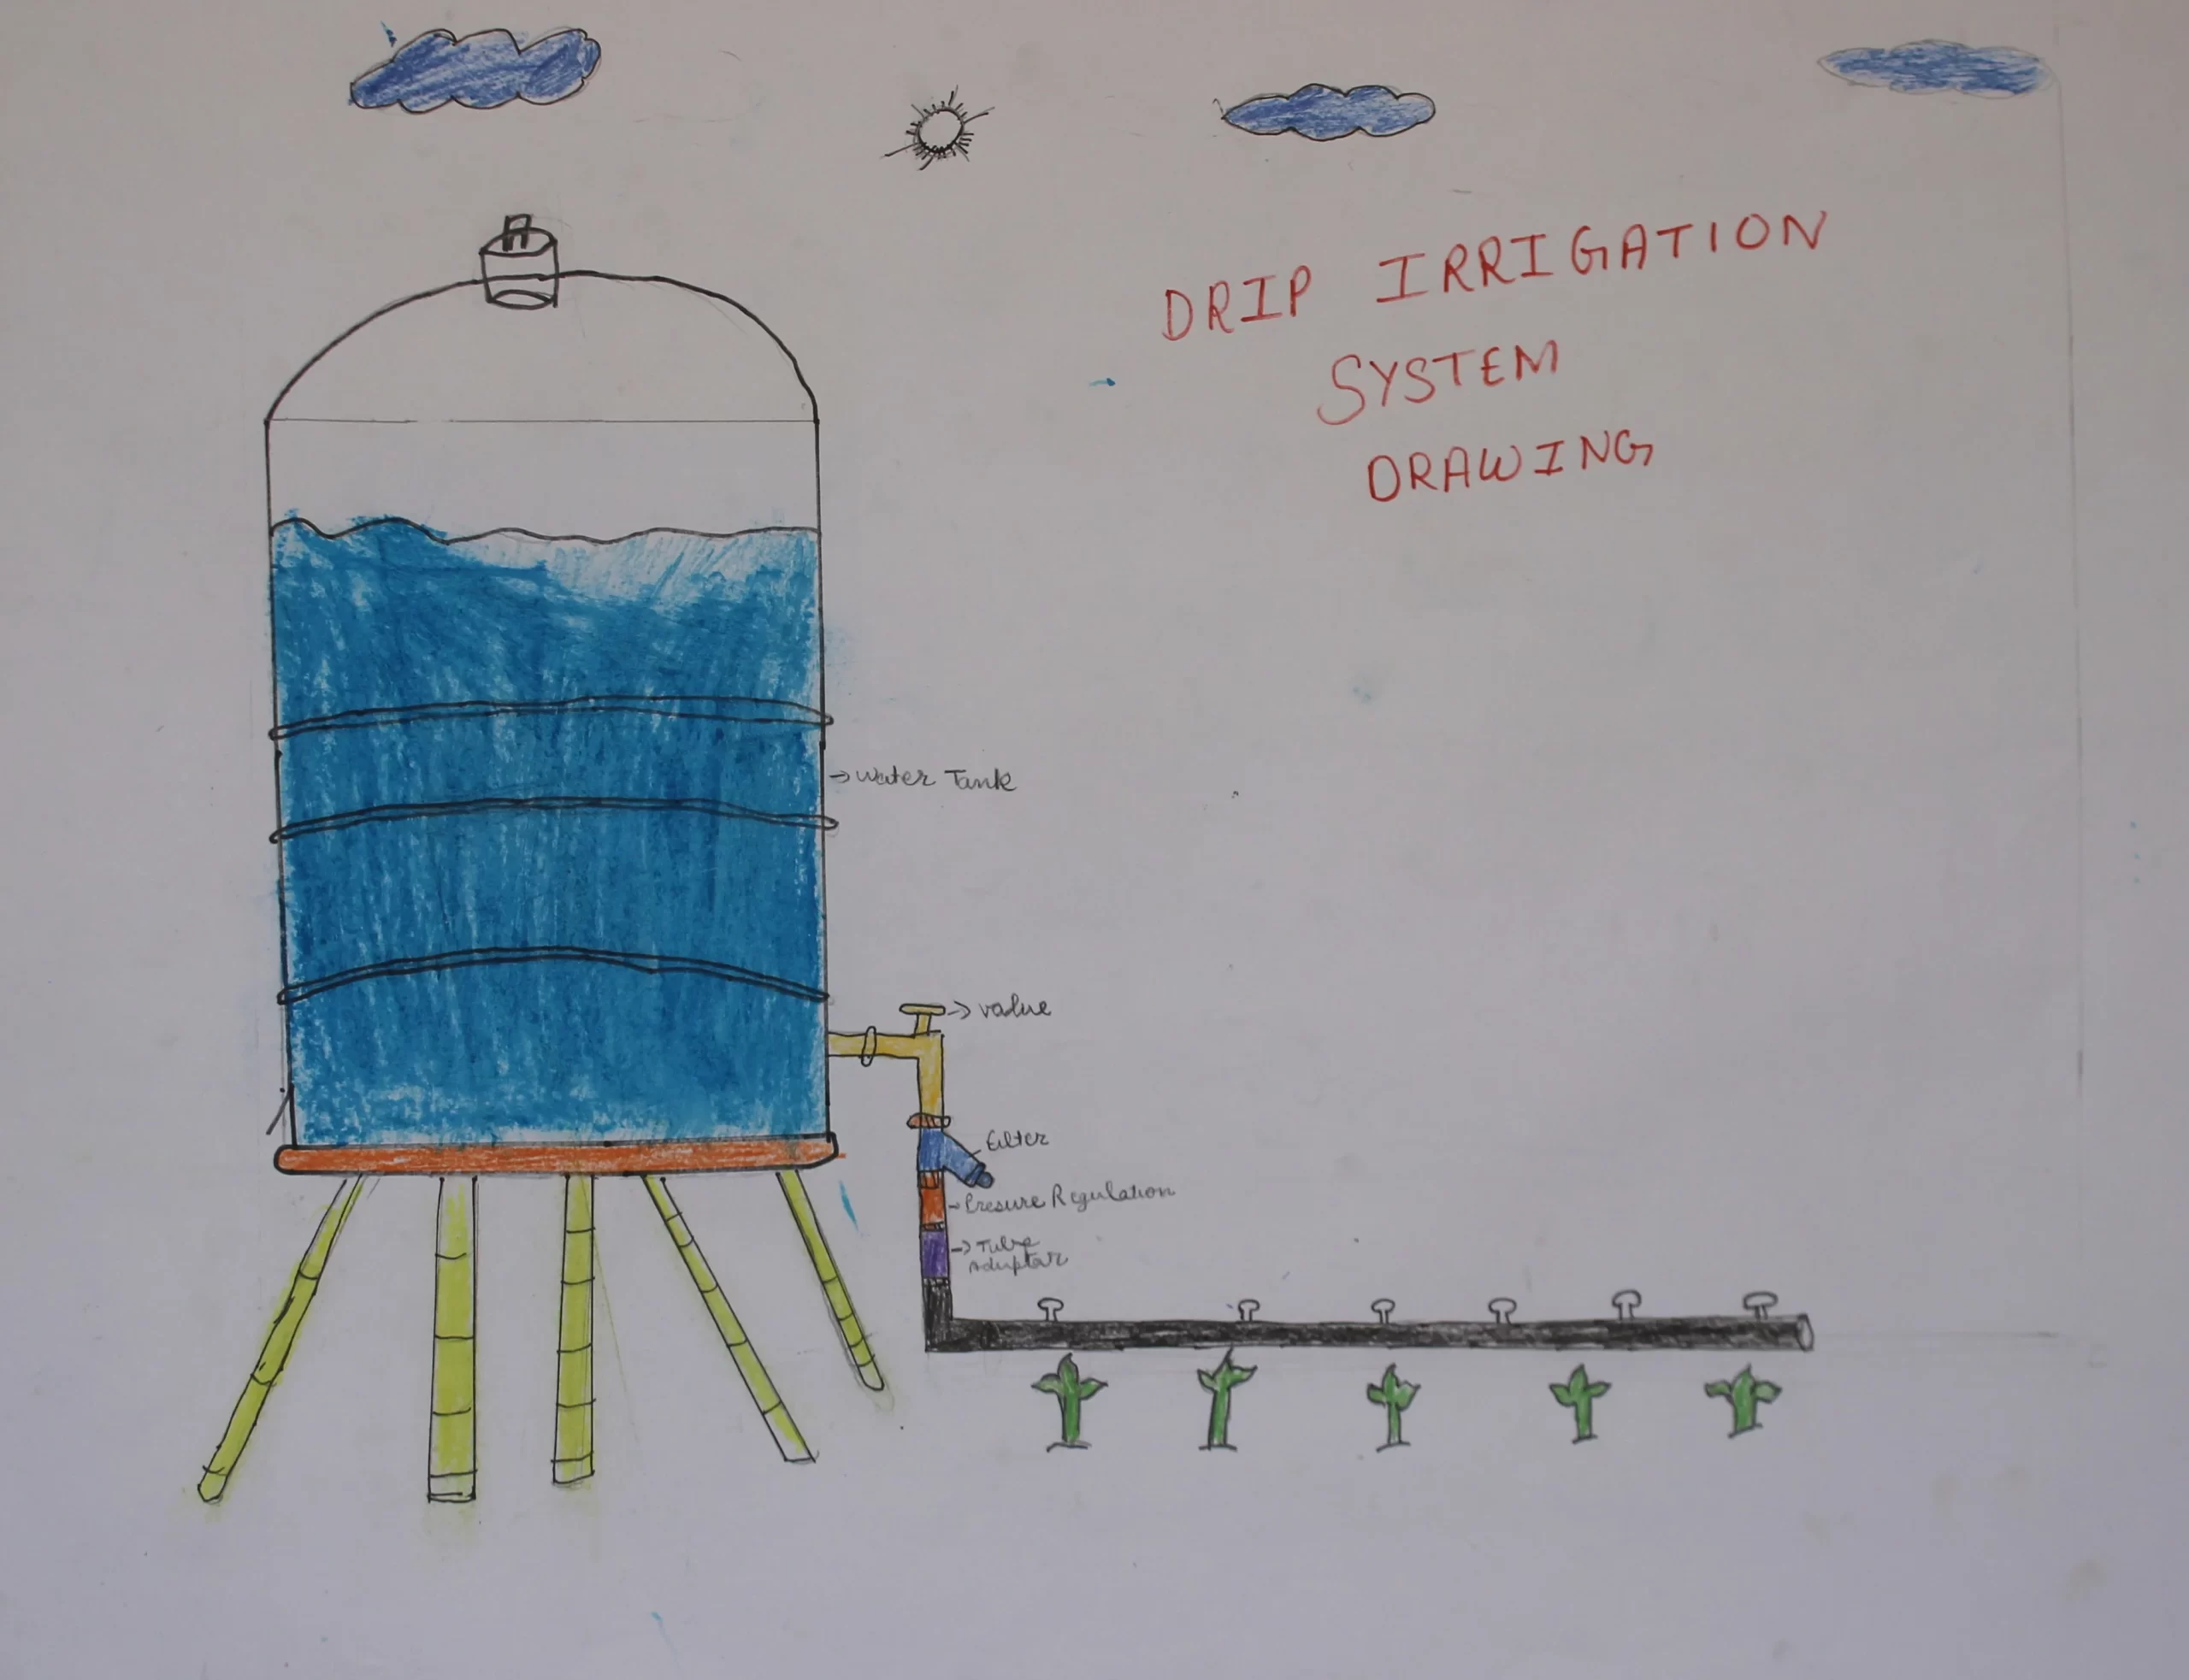 DRIP IRRIGATION
SYSTEM
DRAWING
Water Tank
value
Filter
Presure Regulation
Tube
Aduptar